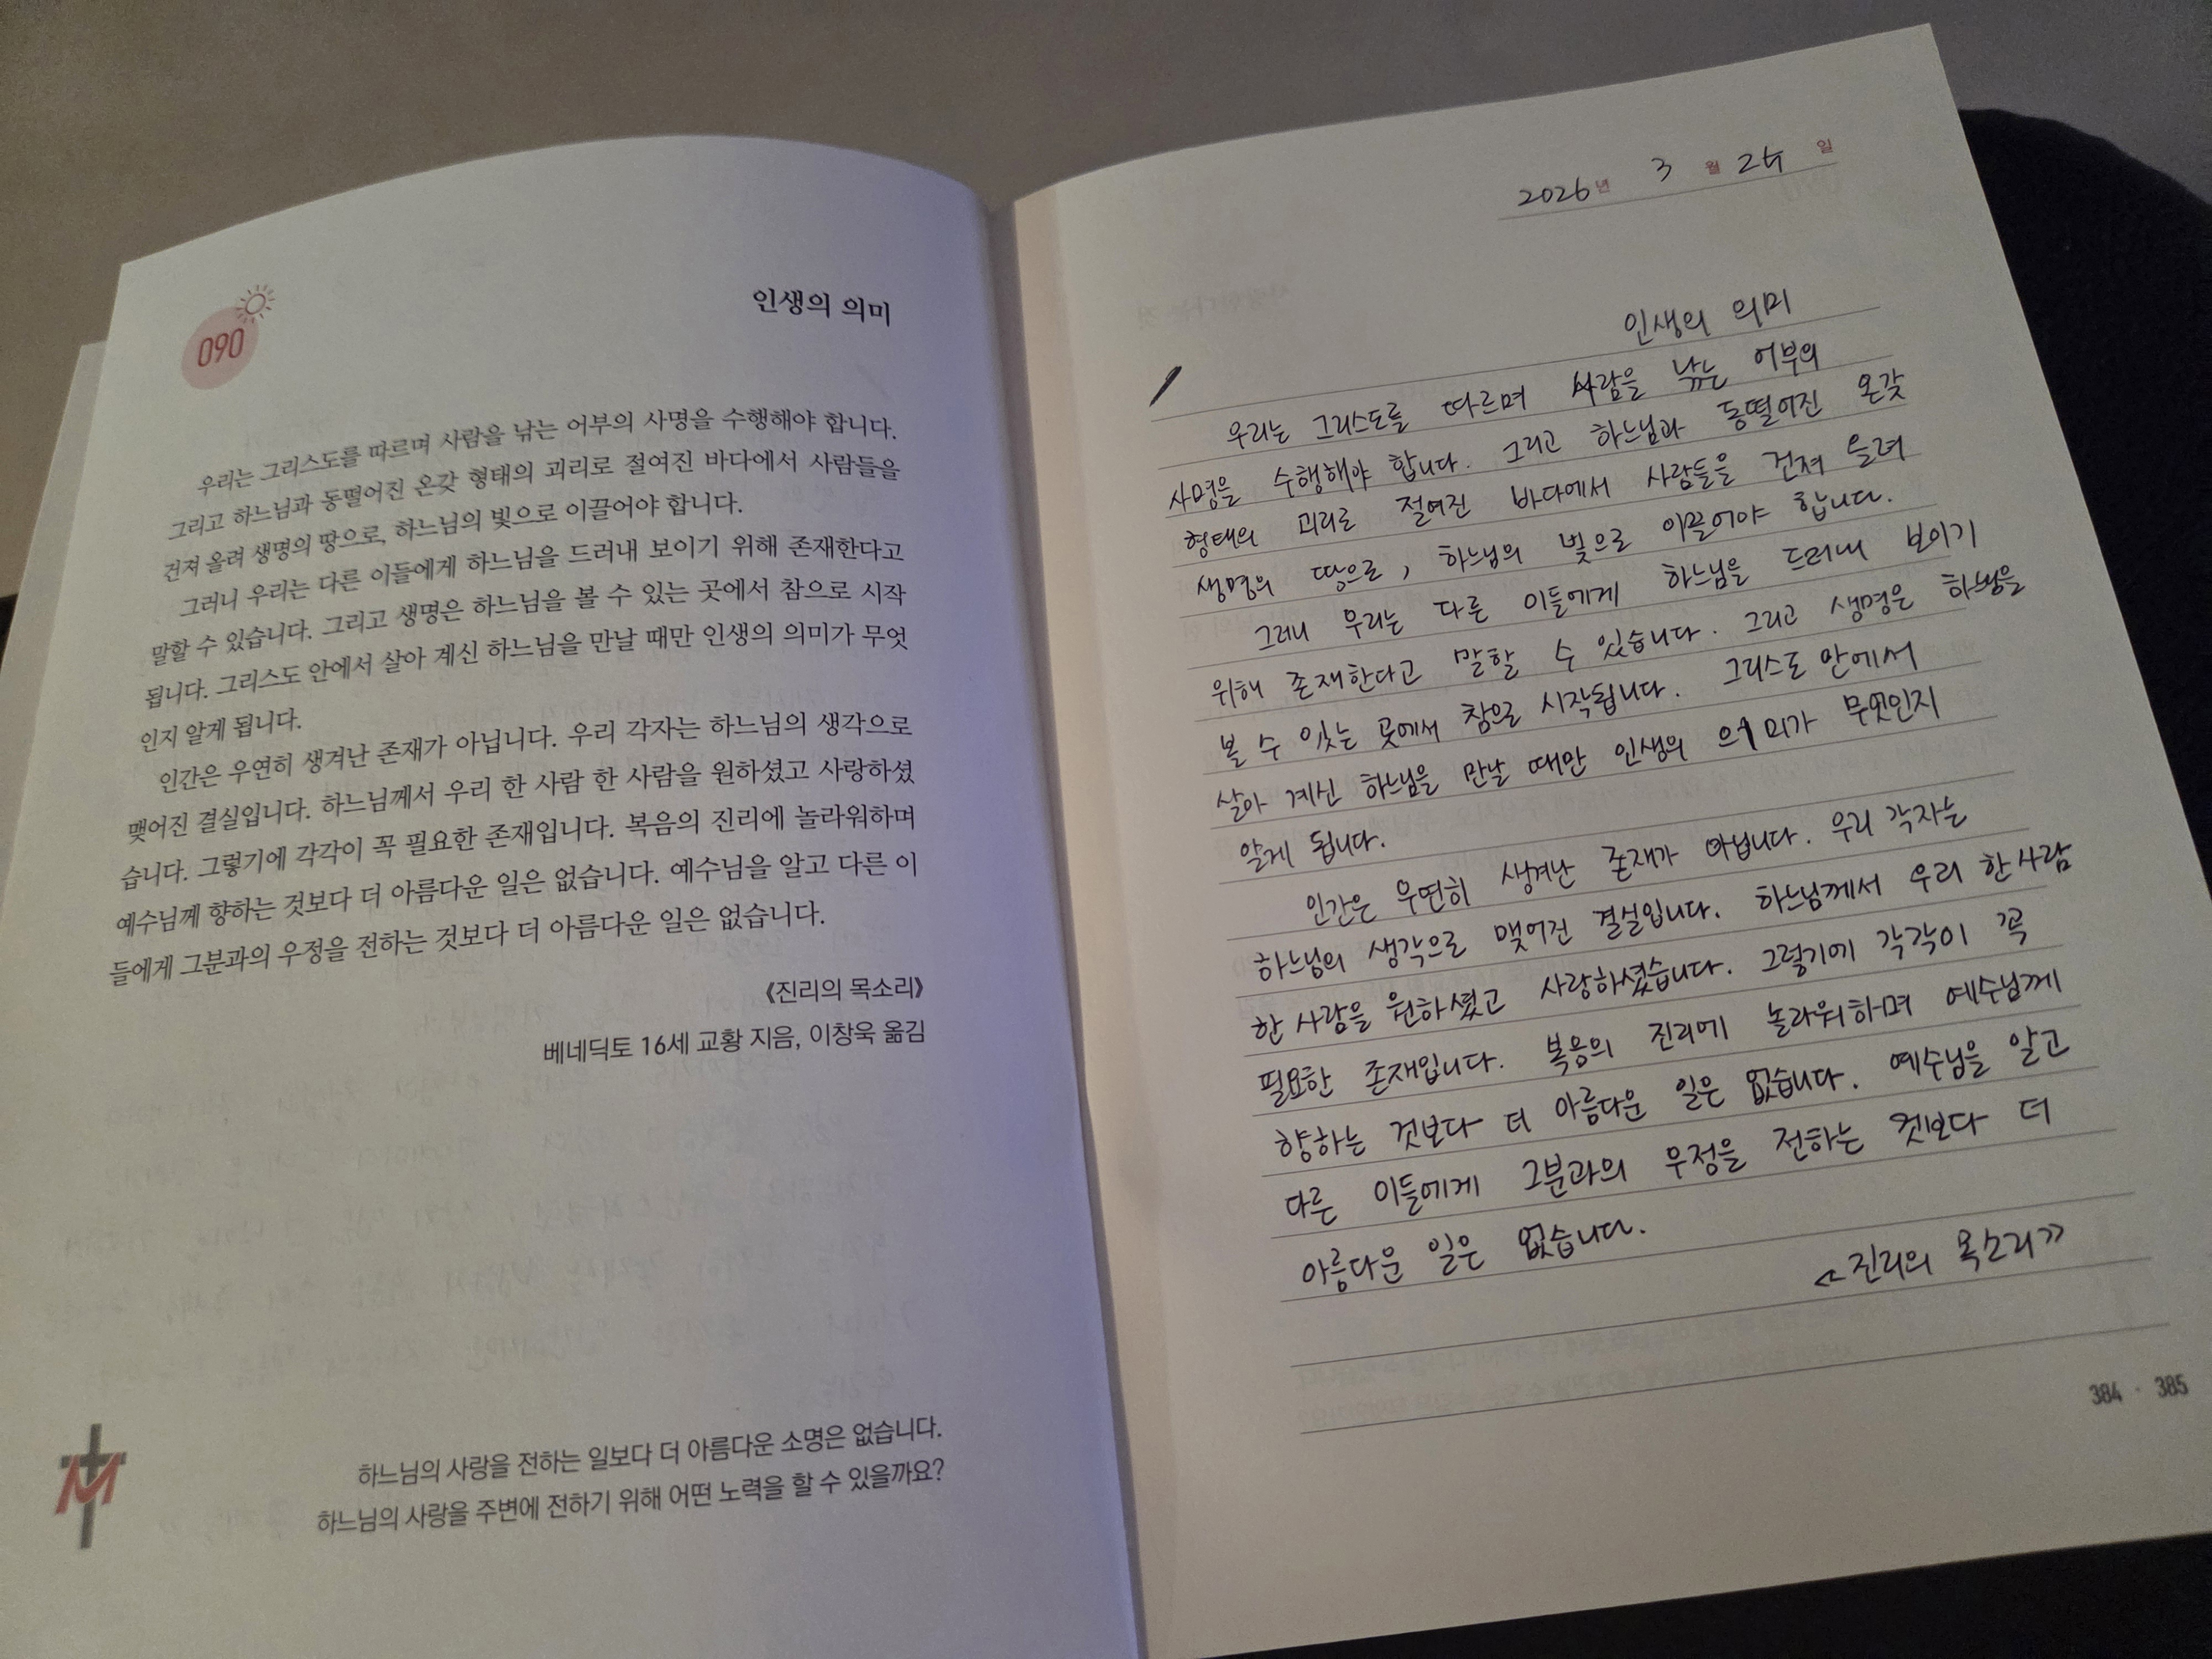 090
인생의 의미
우리는 그리스도를 따르며 사람을 낚는 어부의 사명을 수행해야 합니다.
그리고 하느님과 동떨어진 온갖 형태의 괴리로 절여진 바다에서 사람들을
건져 올려 생명의 땅으로, 하느님의 빛으로 이끌어야 합니다.
그러니 우리는 다른 이들에게 하느님을 드러내 보이기 위해 존재한다고
말할 수 있습니다. 그리고 생명은 하느님을 볼 수 있는 곳에서 참으로 시작
됩니다. 그리스도 안에서 살아 계신 하느님을 만날 때만 인생의 의미가 무엇
인지 알게 됩니다.
인간은 우연히 생겨난 존재가 아닙니다. 우리 각자는 하느님의 생각으로
맺어진 결실입니다. 하느님께서 우리 한 사람 한 사람을 원하셨고 사랑하셨
습니다. 그렇기에 각각이 꼭 필요한 존재입니다. 복음의 진리에 놀라워하며
예수님께 향하는 것보다 더 아름다운 일은 없습니다. 예수님을 알고 다른 이
들에게 그분과의 우정을 전하는 것보다 더 아름다운 일은 없습니다.
《진리의 목소리》
베네딕토 16세 교황 지음, 이창욱 옮김
하느님의 사랑을 전하는 일보다 더 아름다운 소명은 없습니다.
하느님의 사랑을 주변에 전하기 위해 어떤 노력을 할 수 있을까요?
2026년 3월 24일
인생의 의미
우리는 그리스도를 따르며 사람을 낚는 어부의
사명을 수행해야 합니다. 그리고 하느님과 동떨어진 온갖
형태의 괴리로 절여진 바다에서 사람들을 건져 올려
생명의 땅으로, 하느님의 빛으로 이끌어야 합니다.
그러니 우리는 다른 이들에게 하느님을 드러내 보이기
위해 존재한다고 말할 수 있습니다. 그리고 생명은 하느님을
볼 수 있는 곳에서 참으로 시작됩니다. 그리스도 안에서
살아 계신 하느님을 만날 때만 인생의 의미가 무엇인지
알게 됩니다.
인간은 우연히 생겨난 존재가 아닙니다. 우리 각자는
하느님의 생각으로 맺어진 결실입니다. 하느님께서 우리 한 사람
한 사람을 원하셨고 사랑하셨습니다. 그렇기에 각각이 꼭
필요한 존재입니다. 복음의 진리에 놀라워하며 예수님께
향하는 것보다 더 아름다운 일은 없습니다. 예수님을 알고
다른 이들에게 그분과의 우정을 전하는 것보다 더
아름다운 일은 없습니다.
《진리의 목소리》
384 · 385